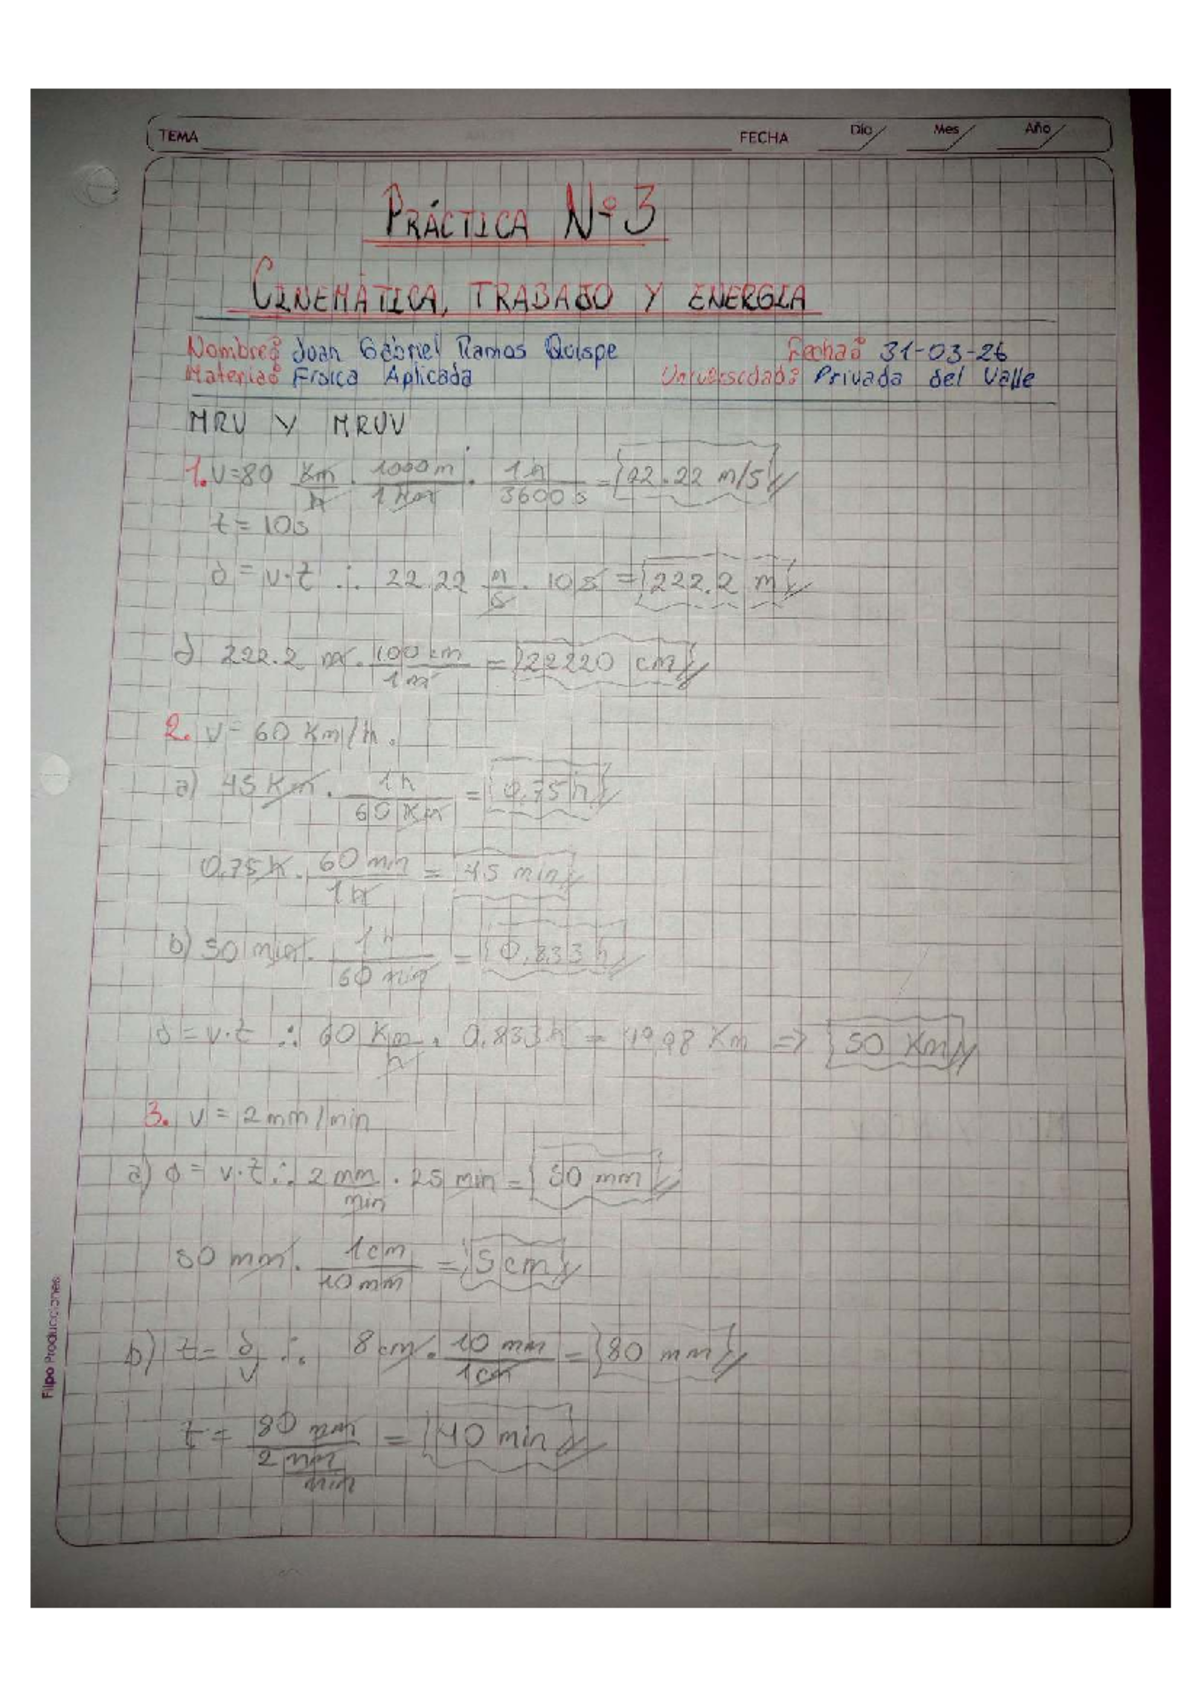 TEMA FECHA Día Mes Año
PRÁCTICA Nº 3
CINEMÁTICA, TRABAJO Y ENERGIA
Nombre: Joan Gabriel Ramos Quispe Fecha: 31-03-26
Materia: Física Aplicada Universidad: Privada del Valle
MRU Y MRUV
1. V=80 Km/h · 1000m/1Km · 1h/3600s = 22.22 m/s
t = 10s
d = v·t ∴ 22.22 m/s · 10s = 222.2 m
a) 222.2 m · 100cm/1m = 22220 cm
2. V= 60 Km/h.
a) 45 Km · 1h/60 Km = 0,75 h
0,75h · 60 min/1h = 45 min
b) 50 min · 1h/60 min = 0,833 h
d = v·t ∴ 60 Km/h · 0,833 h = 49,98 Km => 50 Km
3. V = 2mm/min
a) d = v·t ∴ 2 mm/min · 25 min = 50 mm
50 mm · 1cm/10mm = 5cm
b) t = d/v ∴ 8 cm · 10 mm/1cm = 80 mm
t = 80 mm/2 mm/min = 40 min
Filpo Producciones